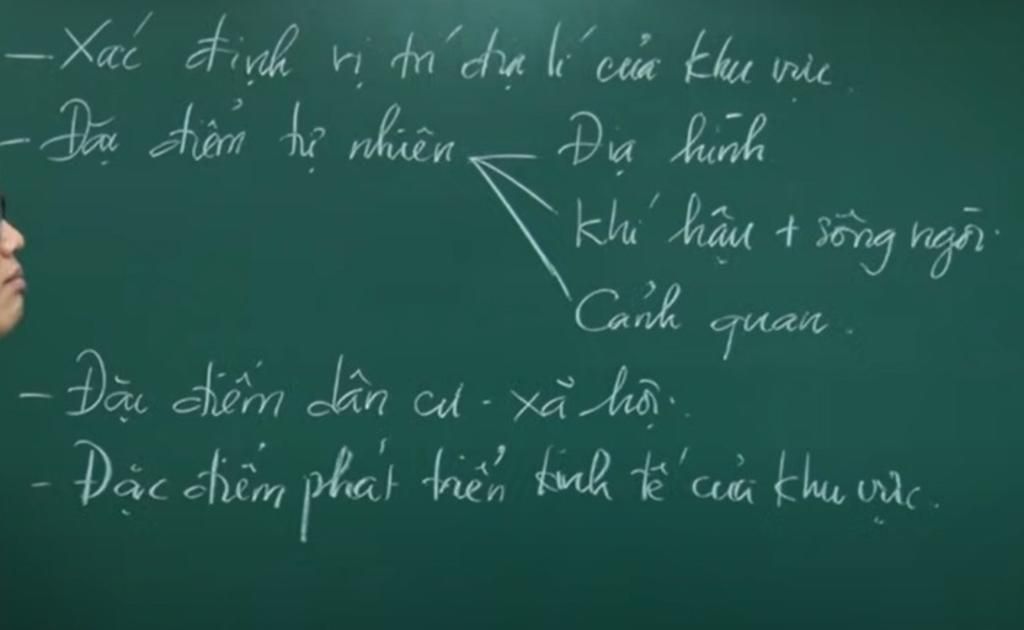 - Xác định vị trí địa lí của khu vực.
- Đặc điểm tự nhiên
Địa hình
Khí hậu + sông ngòi.
Cảnh quan.
- Đặc điểm dân cư - xã hội.
- Đặc điểm phát triển kinh tế của khu vực.